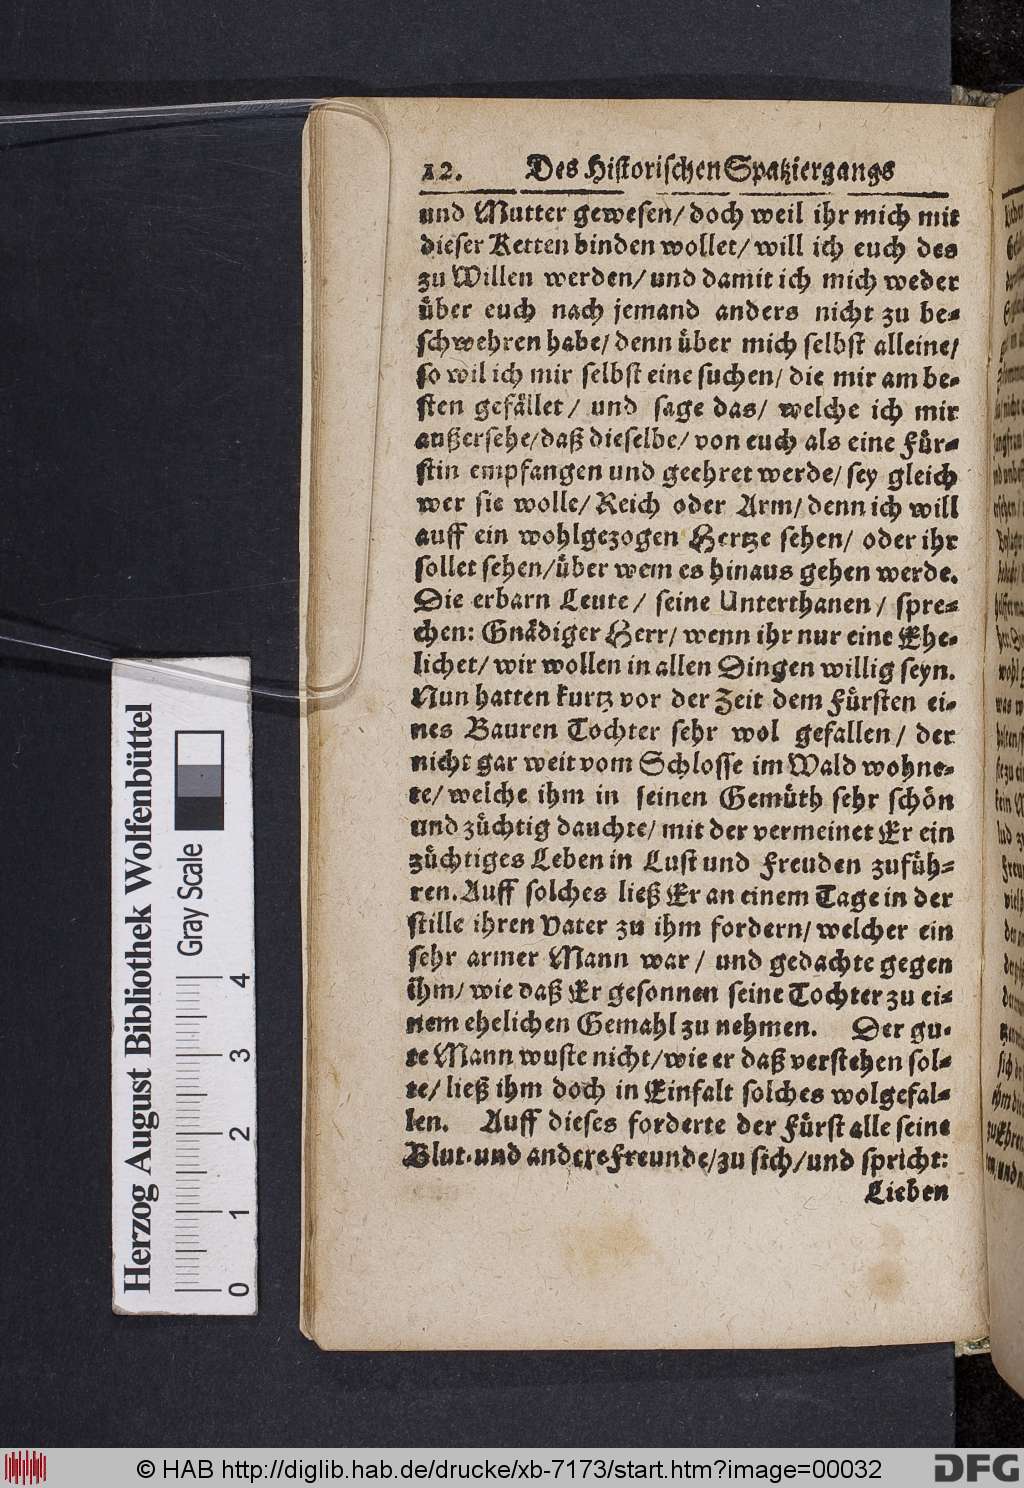 12. Des Historischen Spatziergangs
und Mutter gewesen/ doch weil ihr mich mit
dieser Ketten binden wollet/ will ich euch des
zu Willen werden/ und damit ich mich weder
über euch nach jemand anders nicht zu be-
schwehren habe/ denn über mich selbst alleine/
so wil ich mir selbst eine suchen/ die mir am be-
sten gefället/ und sage das/ welche ich mir
außersehe/ daß dieselbe/ von euch als eine Für-
stin empfangen und geehret werde/ sey gleich
wer sie wolle/ Reich oder Arm/ denn ich will
auff ein wohlgezogen Hertze sehen/ oder ihr
sollet sehen/ über wem es hinaus gehen werde.
Die erbarn Leute/ seine Unterthanen/ spre-
chen: Gnädiger Herr/ wenn ihr nur eine Ehe-
lichet/ wir wollen in allen Dingen willig seyn.
Nun hatten kurtz vor der Zeit dem Fürsten ei-
nes Bauren Tochter sehr wol gefallen/ der
nicht gar weit vom Schlosse im Wald wohne-
te/ welche ihm in seinen Gemüth sehr schön
und züchtig dauchte/ mit der vermeinet Er ein
züchtiges Leben in Lust und Freuden zuführ-
ren. Auff solches ließ Er an einem Tage in der
stille ihren Vater zu ihm fordern/ welcher ein
sehr armer Mann war/ und gedachte gegen
ihm/ wie daß Er gesonnen seine Tochter zu ei-
nem ehelichen Gemahl zu nehmen. Der gu-
te Mann wuste nicht/ wie er daß verstehen sol-
te/ ließ ihm doch in Einfalt solches wolgefal-
len. Auff dieses forderte der Fürst alle seine
Blut- und anders Freunde/ zu sich/ und spricht:
Lieben
Herzog August Bibliothek Wolfenbüttel
Gray Scale
0 1 2 3 4
© HAB http://diglib.hab.de/drucke/xb-7173/start.htm?image=00032
DFG